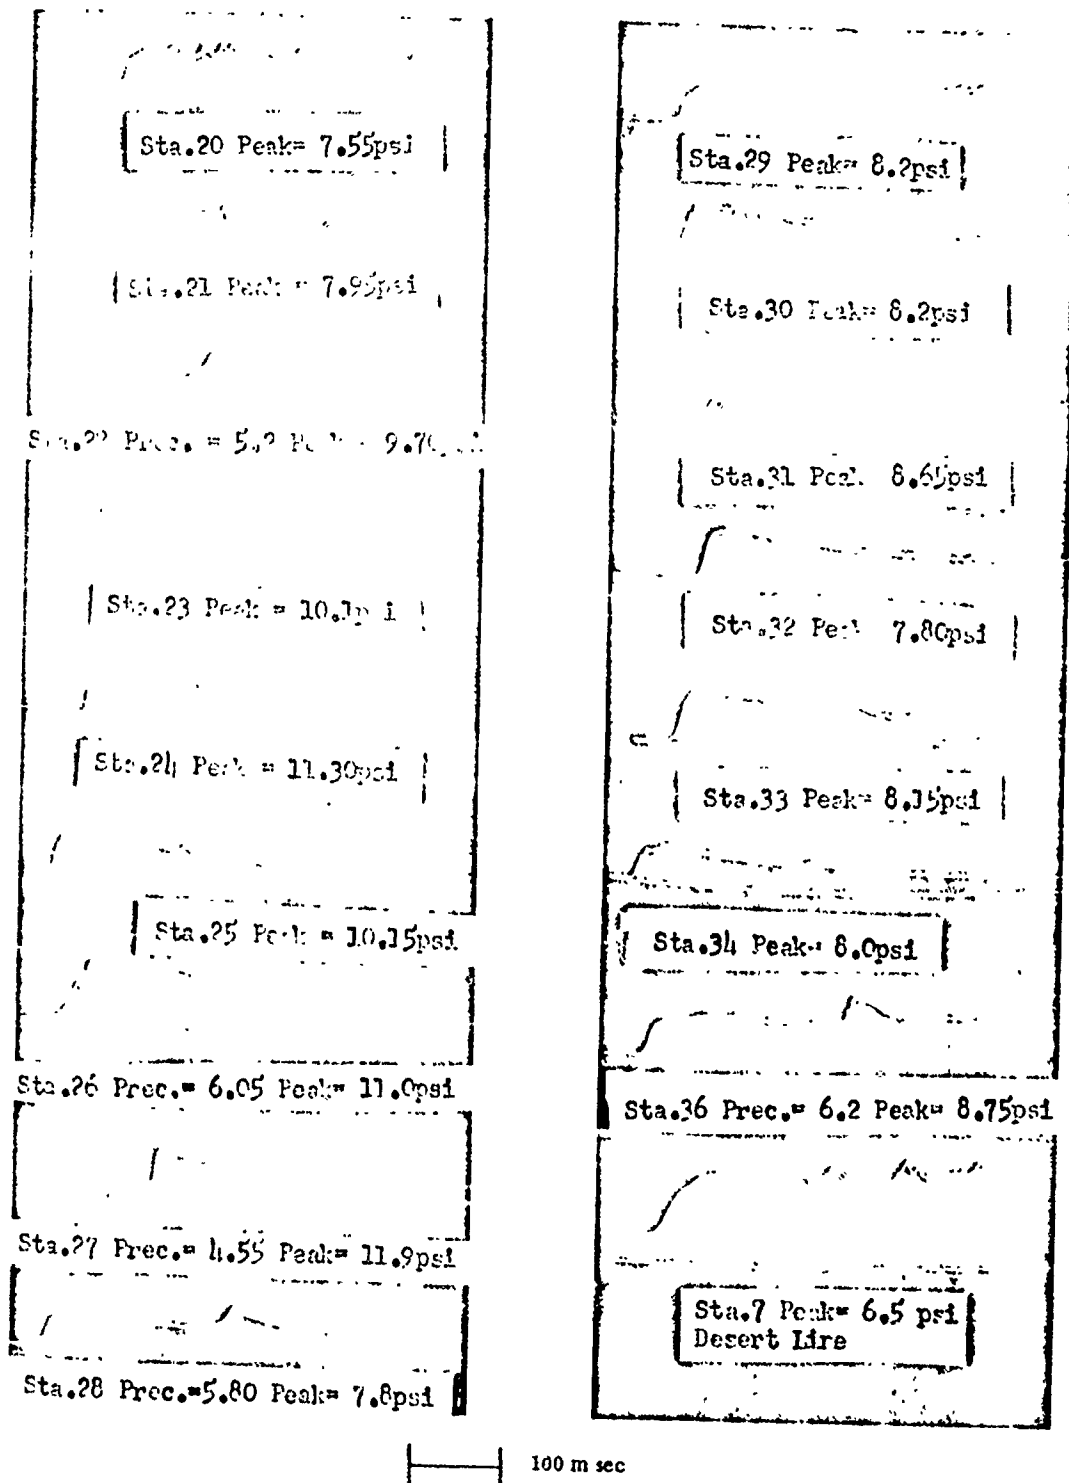 Sta.20 Peak= 7.55psi
Sta.21 Peak = 7.95psi
Sta.22 Prec. = 5.2 Peak = 9.70psi
Sta.23 Peak = 10.1psi
Sta.24 Peak = 11.30psi
Sta.25 Peak = 10.15psi
Sta.26 Prec.= 6.05 Peak= 11.0psi
Sta.27 Prec.= 4.55 Peak= 11.9psi
Sta.28 Prec.=5.80 Peak= 7.8psi
Sta.29 Peak= 8.2psi
Sta.30 Peak= 8.2psi
Sta.31 Peak 8.65psi
Sta.32 Peak 7.80psi
Sta.33 Peak= 8.15psi
Sta.34 Peak= 8.0psi
Sta.36 Prec.= 6.2 Peak= 8.75psi
Sta.7 Peak= 6.5 psi
Desert Line
100 m sec